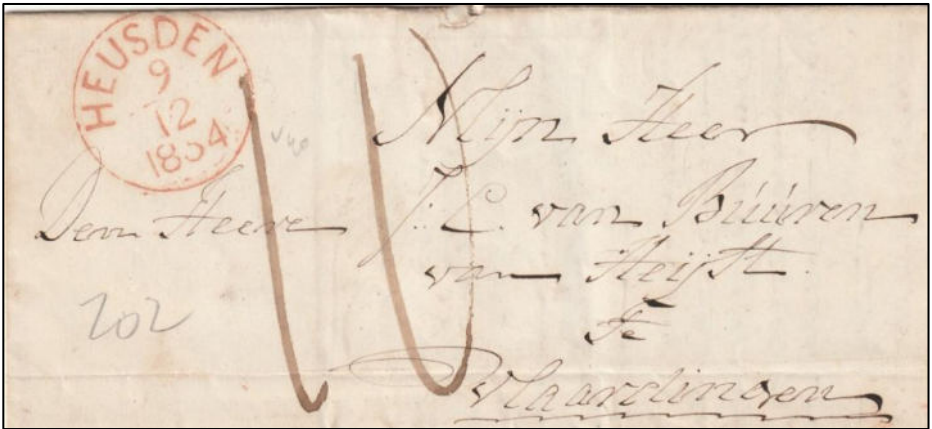 HEUSDEN
9
12
1854
10
Mijn Heer
Den Heere J: C. van Büüren
van Heijst
Te
Vlaardingen
202